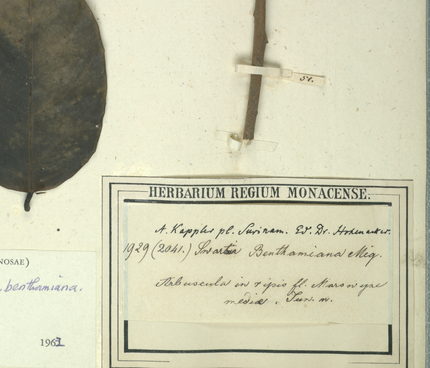 51.
HERBARIUM REGIUM MONACENSE.
A. Kappler pl. Surinam. Ed. Dr. Hohenacker.
1929 (2041.) Swartzia Benthamiana Miq.
Arbuscula in ripis fl. Marowyne
mediae. Jun. m.
NOSAE)
benthamiana.
1961